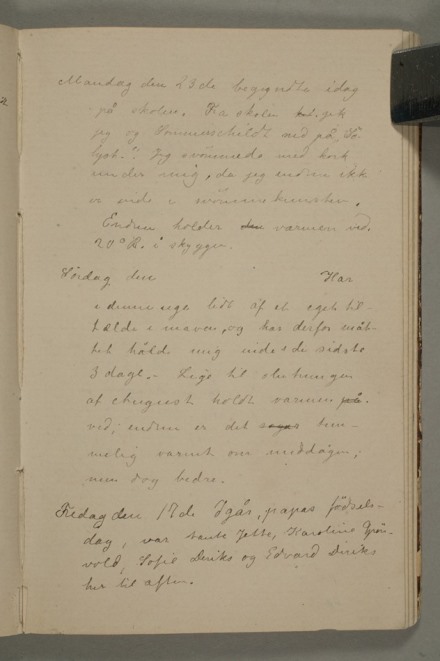 Mandag den 23de begyndte idag
på skolen. Fra skolen gik
jeg og Vommeschildt ned på Sö-
lyst. Jeg svömmede med kork
under mig, da jeg endnu ikke
er inde i svömmekunsten.
Endnu holder den varmen ved.
20° R. i skyggen.
Lördag den Har
i denne uge lidt af et eget til-
fælde i maven, og har derfor måt-
tet holde mig inde de sidste
3 dage. – Lige til slutningen
af august holdt varmen på
ved; endnu er det tem-
melig varmt om middagen;
men dog bedre.
Fredag den 17de Igår, papas födsels-
dag, var tante Jette, Karoline Grön-
vold, Sofie Diriks og Edvard Diriks
her til aften.